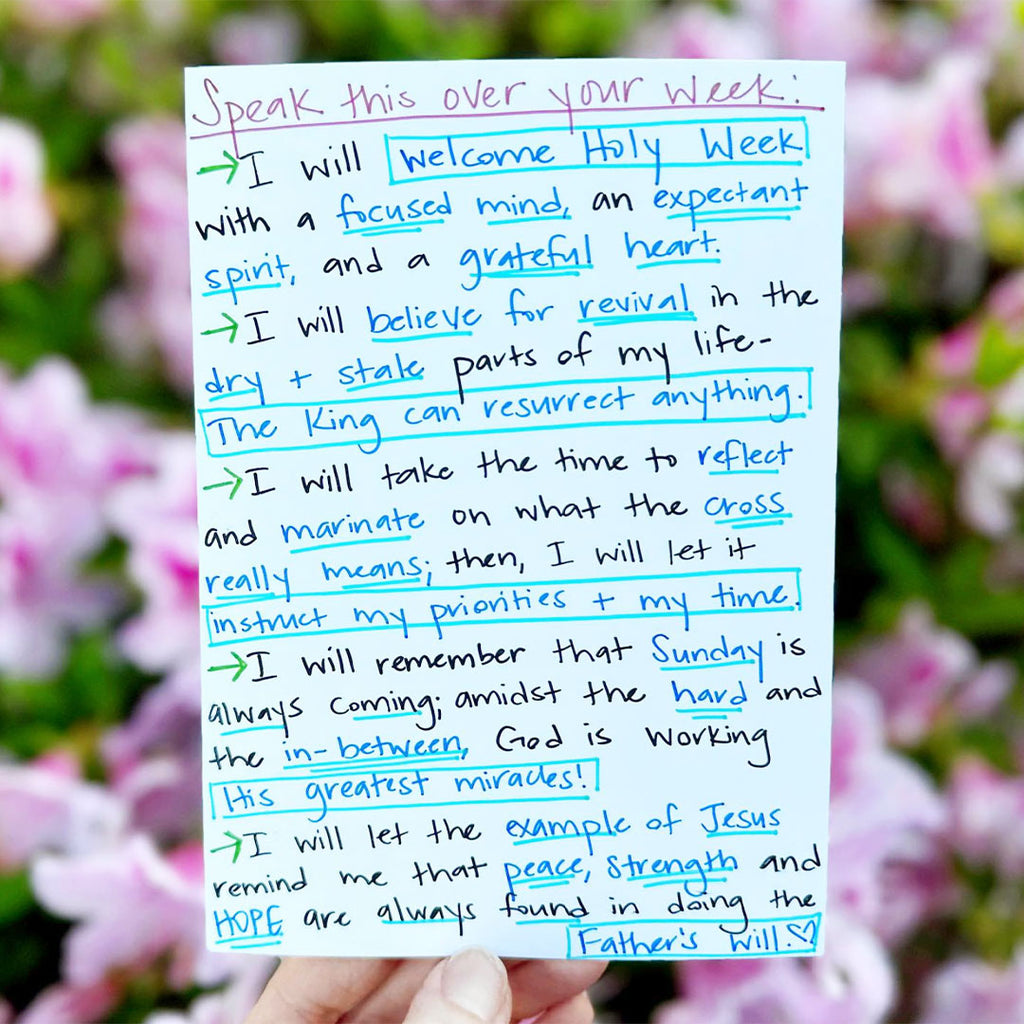 Speak this over your week:
→I will welcome Holy Week
with a focused mind, an expectant
spirit, and a grateful heart.
→I will believe for revival in the
dry + stale parts of my life-
The King can resurrect anything.
→I will take the time to reflect
and marinate on what the cross
really means; then, I will let it
instruct my priorities + my time.
→I will remember that Sunday is
always coming; amidst the hard and
the in-between, God is working
His greatest miracles!
→I will let the example of Jesus
remind me that peace, strength and
HOPE are always found in doing the
Father's will.♡